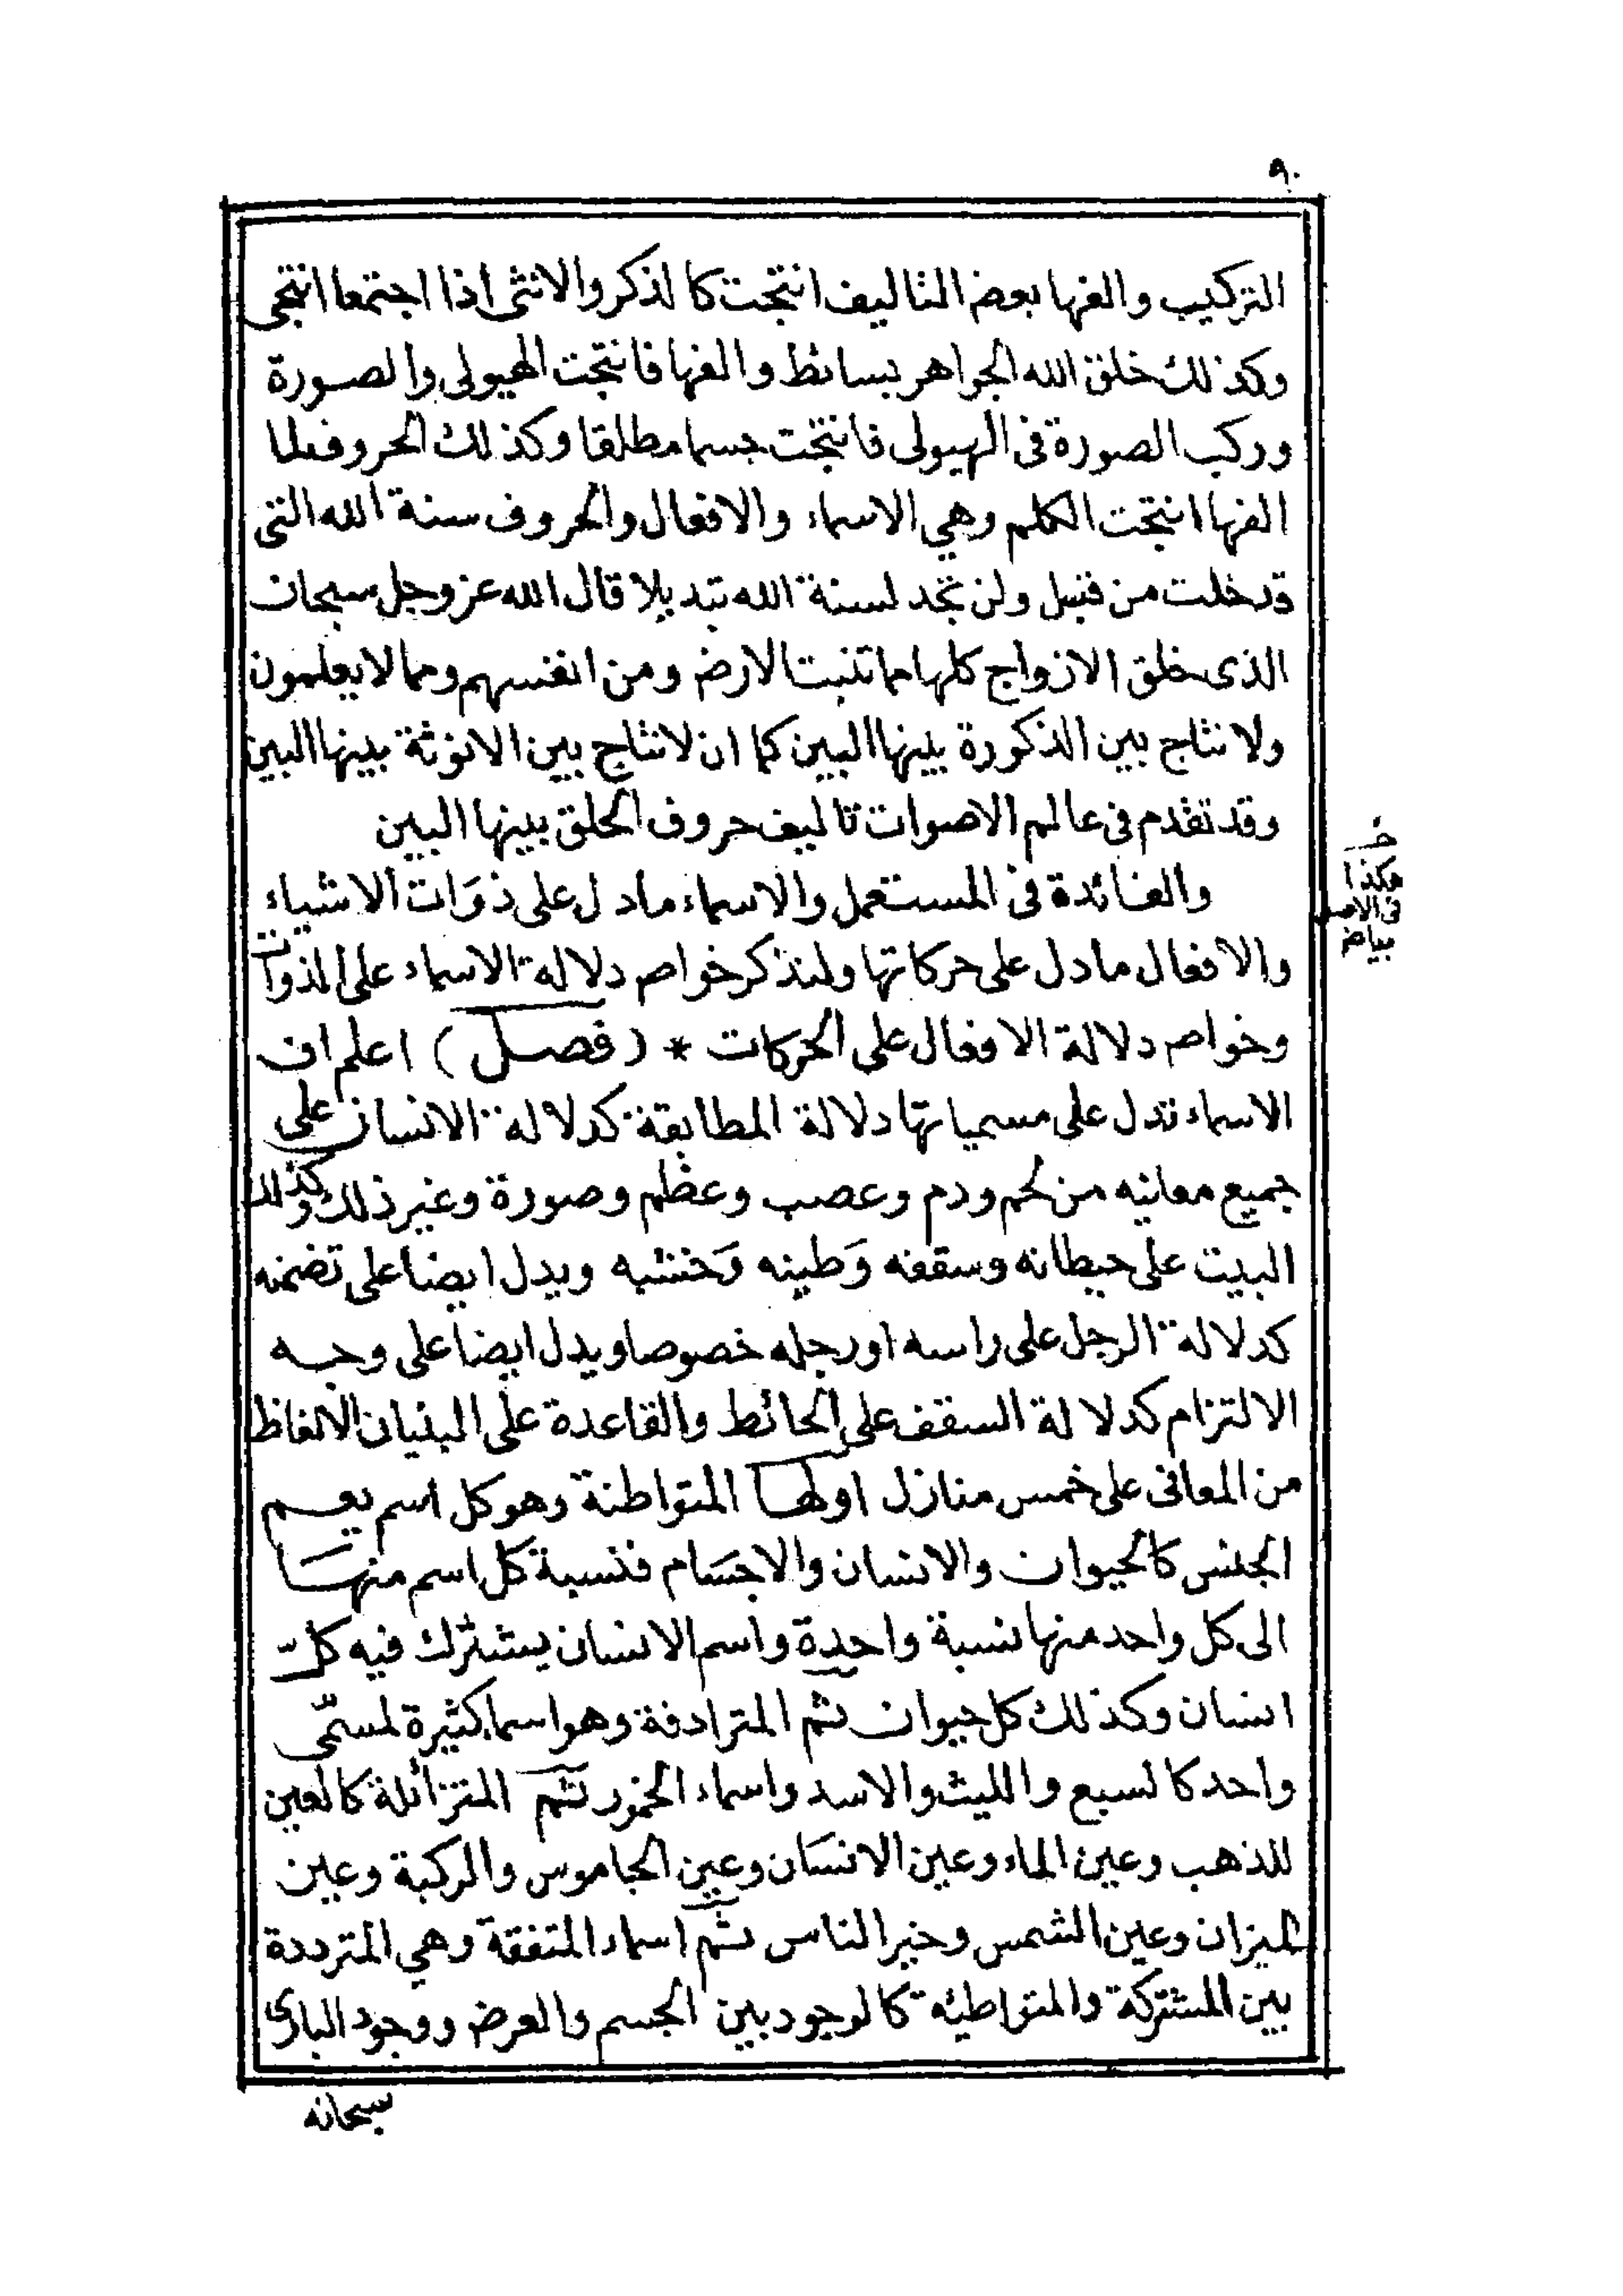 ٩٠
التركيب والفها بعض التاليف انتجت كالذكر والانثى اذا اجتمعا انتجى
وكذلك خلق الله الجواهر بسائط والفها فانتجت الهيولى والصورة
وركب الصورة فى الهيولى فانتجت جسما مطلقا وكذلك الحروف لما
الفها انتجت الكلم وهي الاسماء والافعال والحروف سنة الله التى
قد خلت من قبل ولن تجد لسنة الله تبديلا قال الله عز وجل سبحان
الذى خلق الازواج كلها مما تنبت الارض ومن انفسهم ومما لا يعلمون
ولا نتاج بين الذكورة بينها البين كما ان لا نتاج بين الانوثة بينها البين
وقد تقدم فى عالم الاصوات تاليف حروف الحلق بينها البين
هكذا
فى الاصل
بياض
والفائدة فى المستعمل والاسماء ما دل على ذوات الاشياء
والافعال ما دل على حركاتها ولنذكر خواص دلالة الاسماء على الذوات
وخواص دلالة الافعال على الحركات * (فصل) اعلم ان
الاسماء تدل على مسمياتها دلالة المطابقة كدلالة الانسان على
جميع معانيه من لحم ودم وعصب وعظم وصورة وغير ذلك وكذلك
البيت على حيطانه وسقفه وَطينه وَخشبه ويدل ايضا على تضمنه
كدلالة الرجل على راسه او رجله خصوصا ويدل ايضا على وجه
الالتزام كدلالة السقف على الحائط والقاعدة على البنيان الالفاظ
من المعانى على خمس منازل اولها المتواطئة وهو كل اسم يعم
الجنس كالحيوان والانسان والاجسَام فنسبة كل اسم منهَا
الى كل واحد منها نسبة واحدة واسم الانسان يشترك فيه كلّ
انسان وكذلك كل حيوان ثم المترادفة وهو اسماء كثيرة لمسمّى
واحد كالسبع والليث والاسد واسماء الخمور ثم المتزائلة كالعين
للذهب وعين الماء وعين الانسَان وعين الجاموس والركبة وعين
الميزان وعين الشمس وخير الناس ثم اسماء المتفقة وهي المترددة
بين المشتركة والمتواطية كالوجود بين الجسم والعرض ووجود البارى
سبحانه